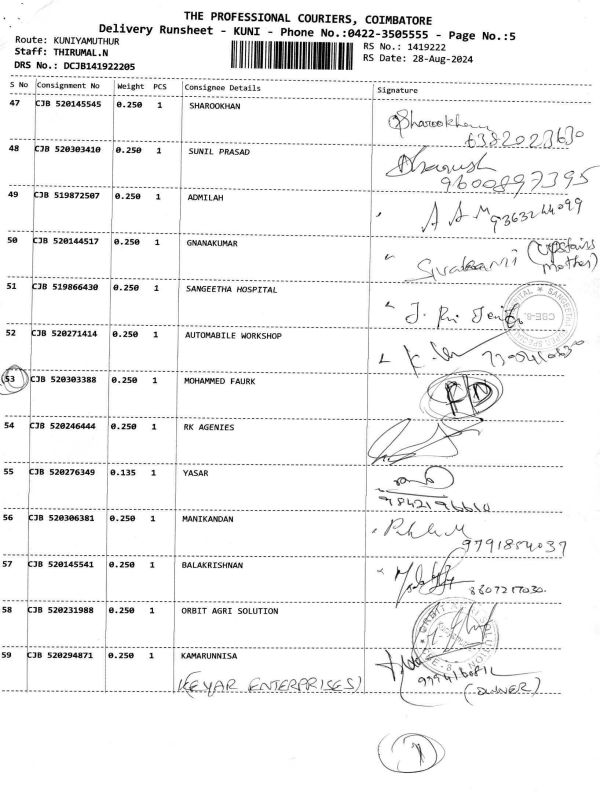 THE PROFESSIONAL COURIERS, COIMBATORE
Delivery Runsheet - KUNI - Phone No.:0422-3505555 - Page No.:5
Route: KUNIYAMUTHUR RS No.: 1419222
Staff: THIRUMAL.N RS Date: 28-Aug-2024
DRS No.: DCJB141922205
S No Consignment No Weight PCS Consignee Details Signature
47 CJB 520145545 0.250 1 SHAROOKHAN
Sharookhan
6382023630
48 CJB 520303410 0.250 1 SUNIL PRASAD
9600897395
49 CJB 519872507 0.250 1 ADMILAH
A A M 9363244099
50 CJB 520144517 0.250 1 GNANAKUMAR
(Upstairs
Mother)
51 CJB 519866430 0.250 1 SANGEETHA HOSPITAL
52 CJB 520271414 0.250 1 AUTOMABILE WORKSHOP
53 CJB 520303388 0.250 1 MOHAMMED FAURK
54 CJB 520246444 0.250 1 RK AGENIES
55 CJB 520276349 0.135 1 YASAR
56 CJB 520306381 0.250 1 MANIKANDAN
9791854037
57 CJB 520145541 0.250 1 BALAKRISHNAN
58 CJB 520231988 0.250 1 ORBIT AGRI SOLUTION
59 CJB 520294871 0.250 1 KAMARUNNISA
(KEYAR ENTERPRISES)
(OWNER)